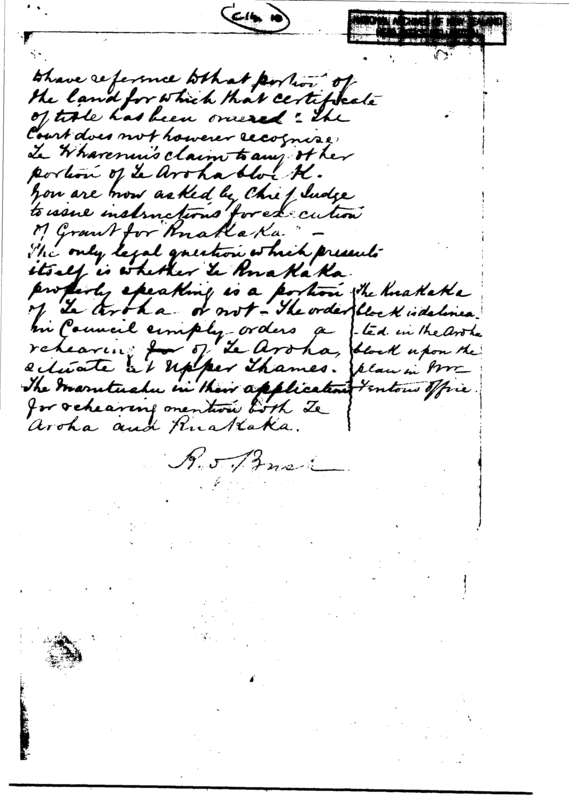 C.14. 10
NATIONAL ARCHIVES OF NEW ZEALAND
to have reference to that portion of
the land for which that certificate
of title has been ordered: The
Court does not however recognise
Te Wharenui's claim to any other
portion of Te Aroha block.
You are now asked by Chief Judge
to issue instructions for execution
of Grant for "Ruakaka" –
The only legal question which presents
itself is whether Te Ruakaka
properly speaking is a portion
of Te Aroha or not – The order
in Council simply orders a
rehearing for of Te Aroha,
situate at Upper Thames.
The Marutuahu in their application
for rehearing mention both Te
Aroha and Ruakaka.
The Ruakaka
block is delinea-
-ted in the Aroha
block upon the
plan in Mr
Fentons Office.
R. S. Bush